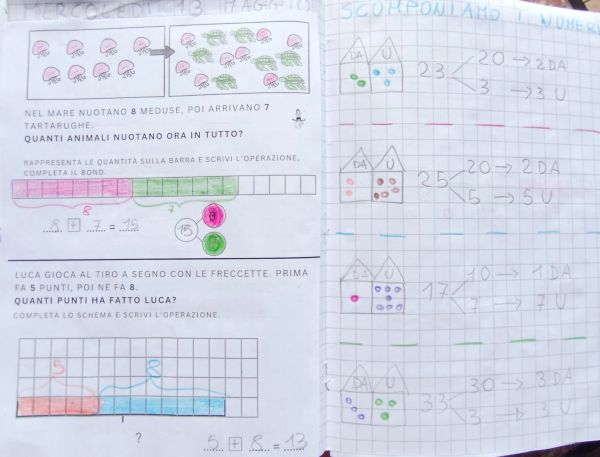 MERCOLEDÌ 13 MAGGIO
NEL MARE NUOTANO 8 MEDUSE, POI ARRIVANO 7
TARTARUGHE.
QUANTI ANIMALI NUOTANO ORA IN TUTTO?
RAPPRESENTA LE QUANTITÀ SULLA BARRA E SCRIVI L'OPERAZIONE,
COMPLETA IL BOND.
8 7
8 + 7 = 15
15 8 7
LUCA GIOCA AL TIRO A SEGNO CON LE FRECCETTE. PRIMA
FA 5 PUNTI, POI NE FA 8.
QUANTI PUNTI HA FATTO LUCA?
COMPLETA LO SCHEMA E SCRIVI L'OPERAZIONE.
5 8
?
5 + 8 = 13
SCOMPONIAMO I NUMERI
DA U 23 20 → 2 DA
3 → 3 U
DA U 25 20 → 2 DA
5 → 5 U
DA U 17 10 → 1 DA
7 → 7 U
DA U 33 30 → 3 DA
3 → 3 U